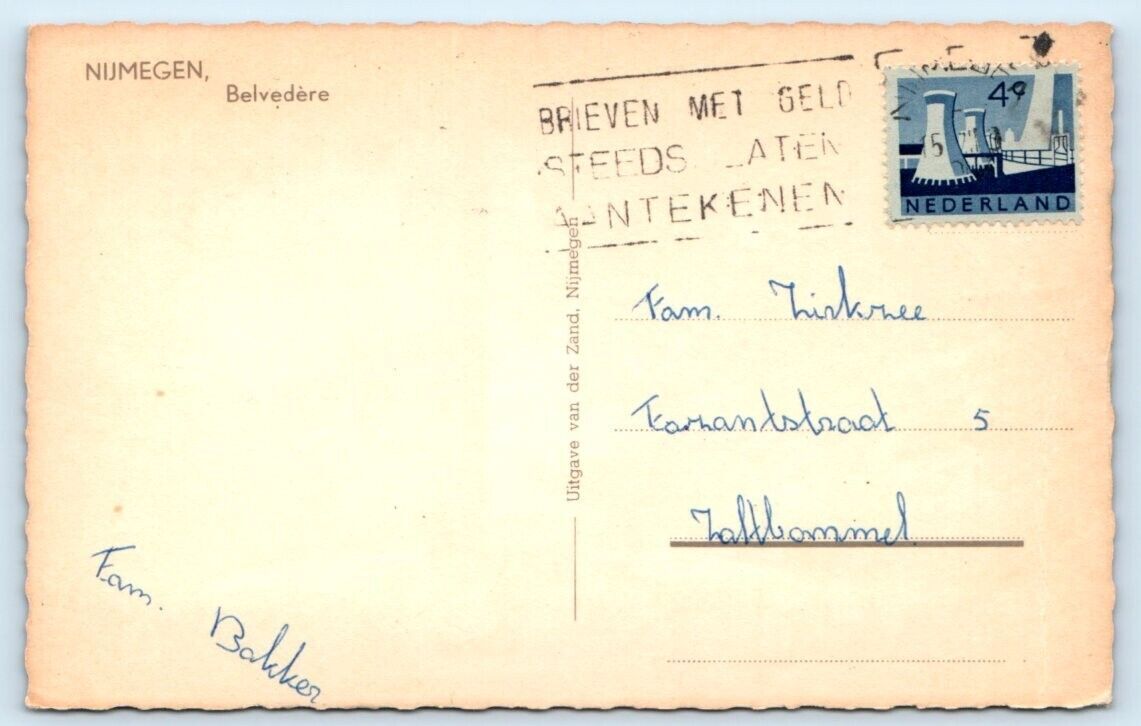 NIJMEGEN,
Belvedère
BRIEVEN MET GELD
STEEDS LATEN
AANTEKENEN
4c
NEDERLAND
Uitgave van der Zand, Nijmegen
Fam.
5
Zaltbommel
Fam. Bakker